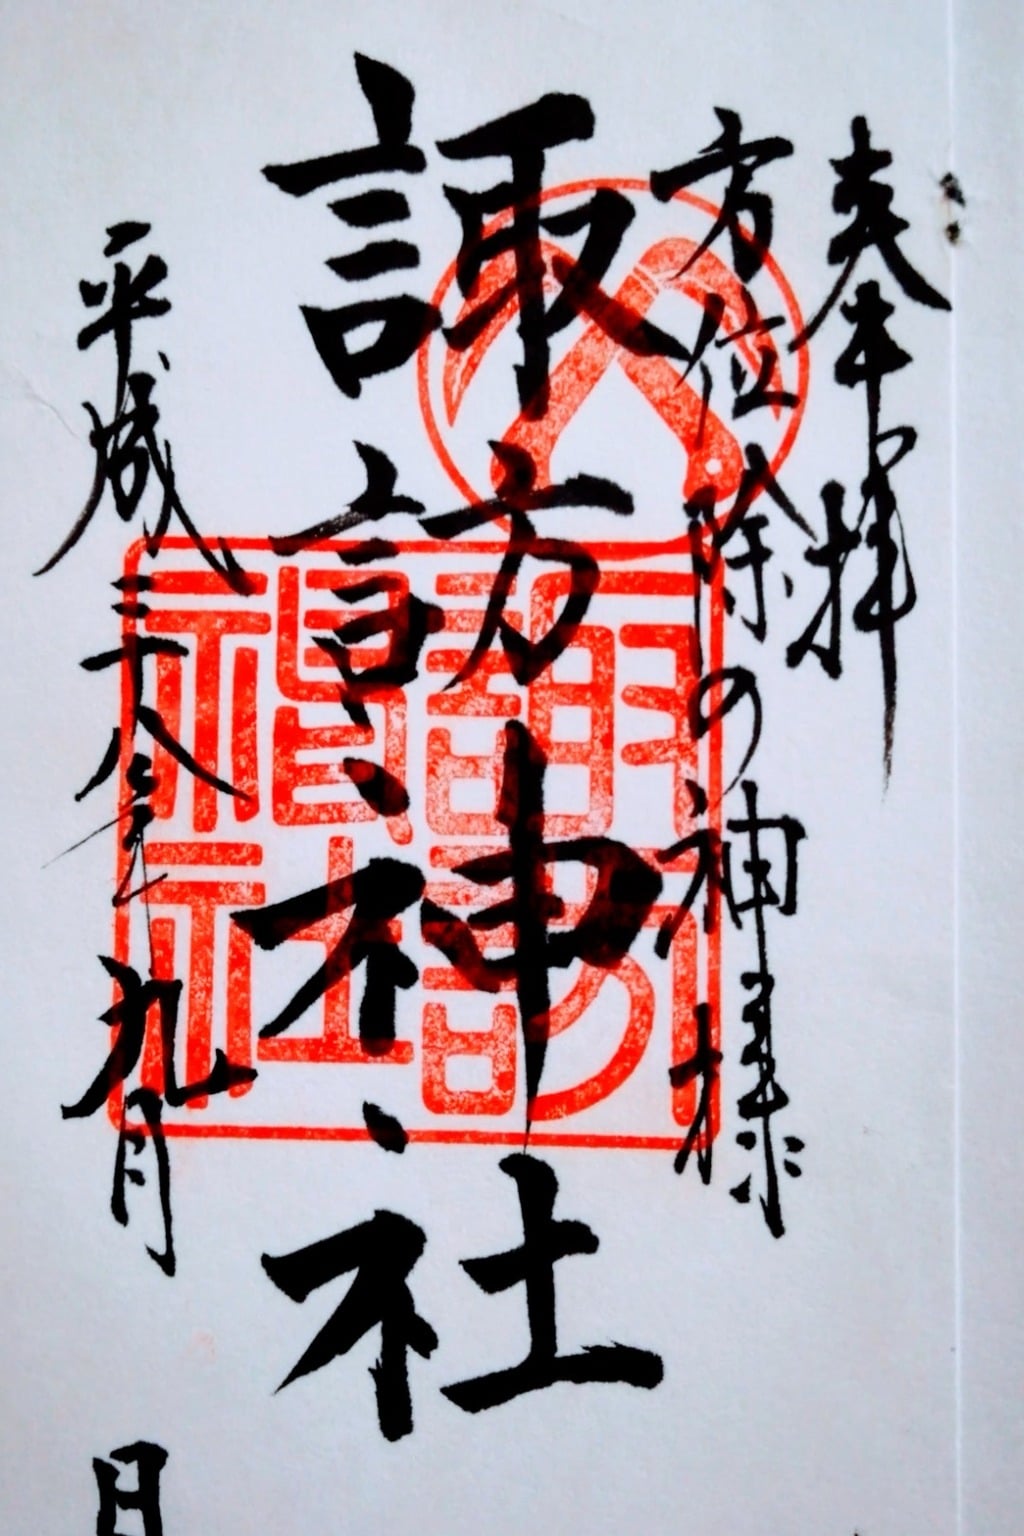 奉拝
方位除の神様
諏訪神社
平成二十八年九月 日